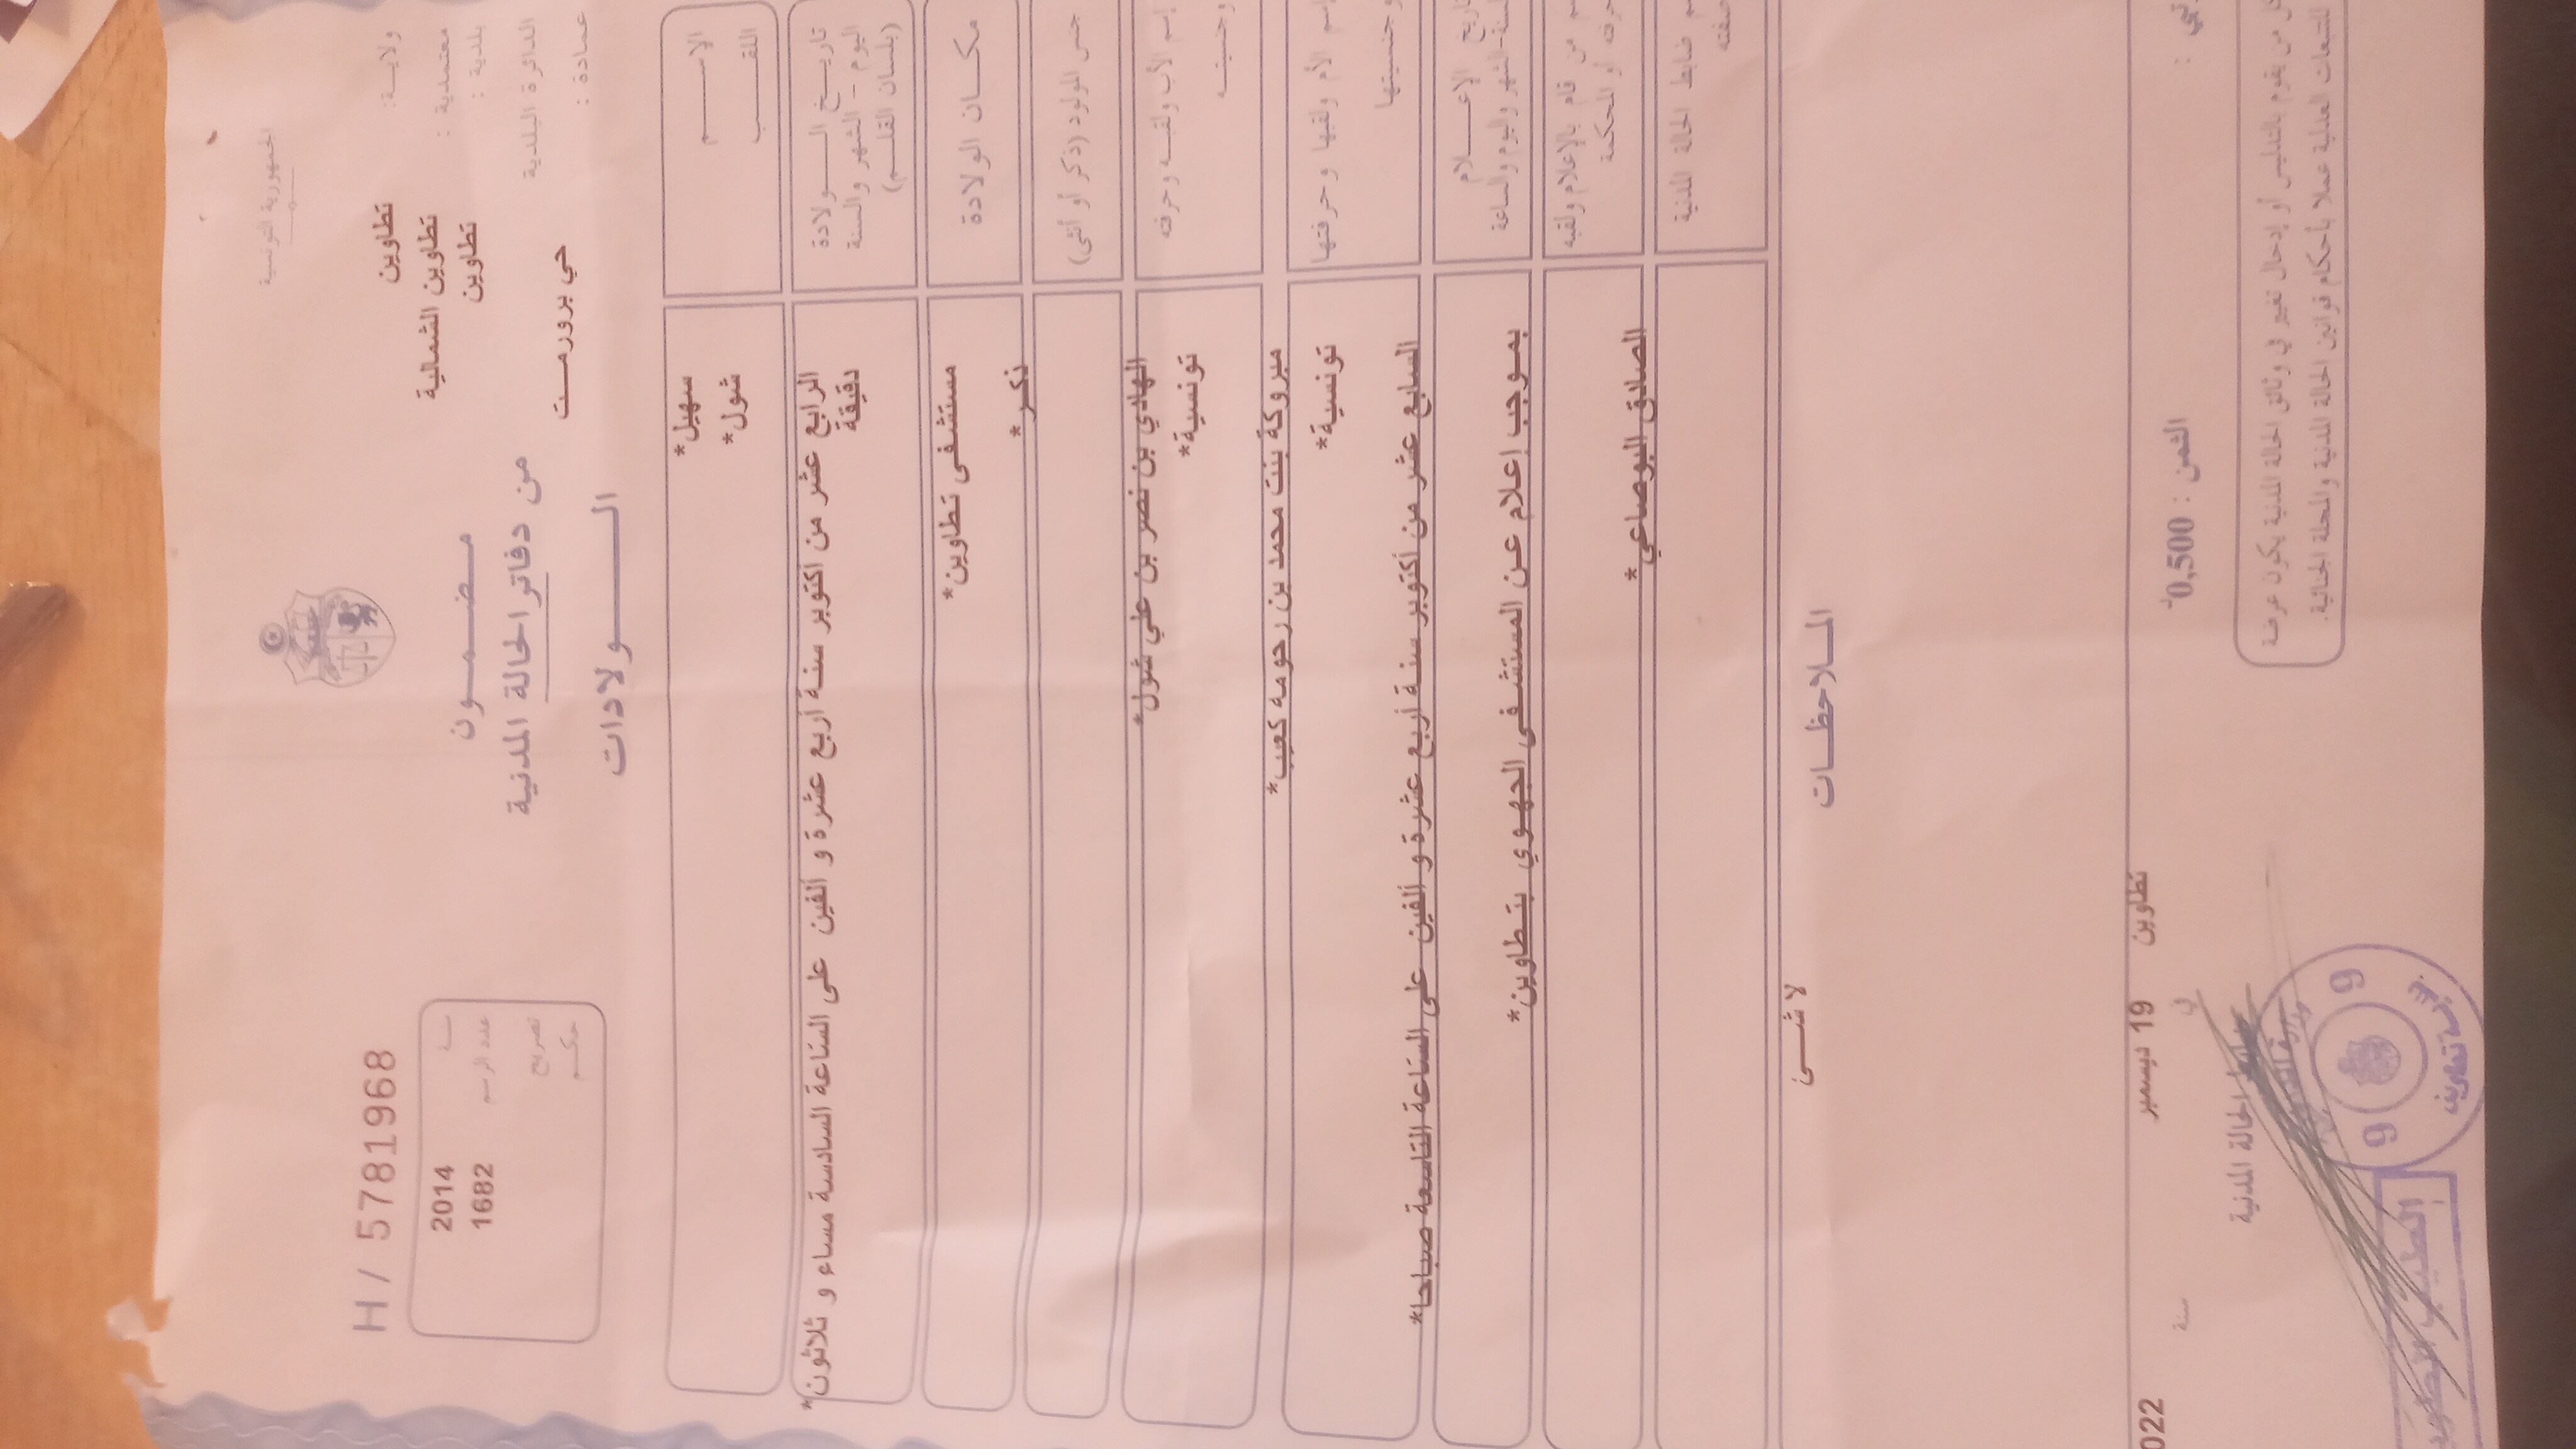 الجمهورية التونسية
H / 5781968
ولاية: تطاوين
معتمدية : تطاوين الشمالية
بلدية : تطاوين
الدائرة البلدية
عمادة : حي برورمت
مضمون
من دفاتر الحالة المدنية
الولادات
سنة 2014
عدد الرسم 1682
تصريح
حكم
الاسم سهيل*
اللقب شول*
تاريخ الولادة الرابع عشر من أكتوبر سنة أربع عشرة و ألفين على الساعة السادسة مساء و ثلاثون*
اليوم - الشهر والسنة دقيقة
(بلسان القلم)
مكان الولادة مستشفى تطاوين*
جنس المولود (ذكر أو أنثى) ذكر*
إسم الأب ولقبه وحرفته الهادي بن نصر بن علي شول*
وجنسيته تونسية*
إسم الأم ولقبها وحرفتها مبروكة بنت محمد بن رحومه كعيب*
وجنسيتها تونسية*
تاريخ الإعلام السابع عشر من أكتوبر سنة أربع عشرة و ألفين على الساعة التاسعة صباحا*
السنة-الشهر واليوم والساعة
من قام بالإعلام ولقبه بموجب إعلام عن المستشفى الجهوي بتطاوين*
حرفته أو المحكمة
ضابط الحالة المدنية الصادق البوصاعي*
صفته
الملاحظات
لا شئ
تطاوين 19 ديسمبر 022
الثمن : 0,500د
في
سنة
ضابط الحالة المدنية
كل من يقوم بالتدليس أو إدخال تغيير في وثائق الحالة المدنية يكون عرضة
للتبعات العدلية عملا بأحكام قوانين الحالة المدنية والمجلة الجنائية.
9 9
تطاوين